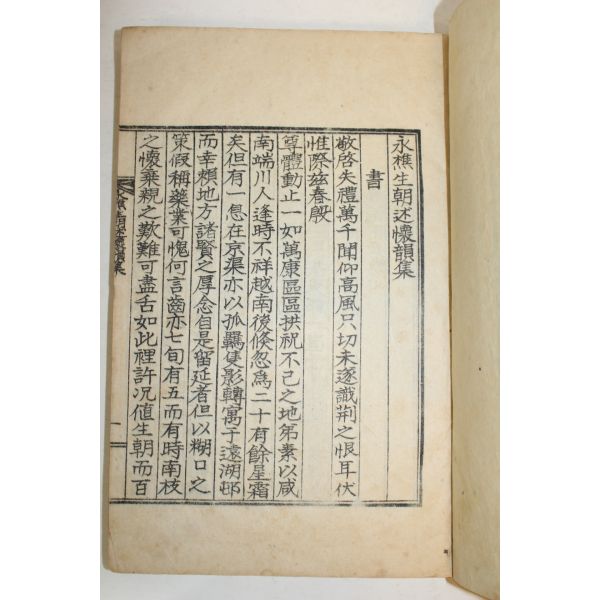 永樵生朝述懷韻集
書
敬啓失禮萬千聞仰高風只切未遂識荊之恨耳伏
惟際玆春殷
尊體動止一如萬康區區拱祝不已之地弟素以咸
南端川人逢時不祥越南後倏忽爲二十有餘星霜
矣但有一息在京渠亦以孤羈隻影轉寓于遠湖邨
而幸頼地方諸賢之厚念自是留延者但以糊口之
策假稱藥業可愧何言齒亦七旬有五而有時南枝
之懷棄親之歎難可盡舌如此裡許况値生朝而百
永樵生朝述懷韻集
一